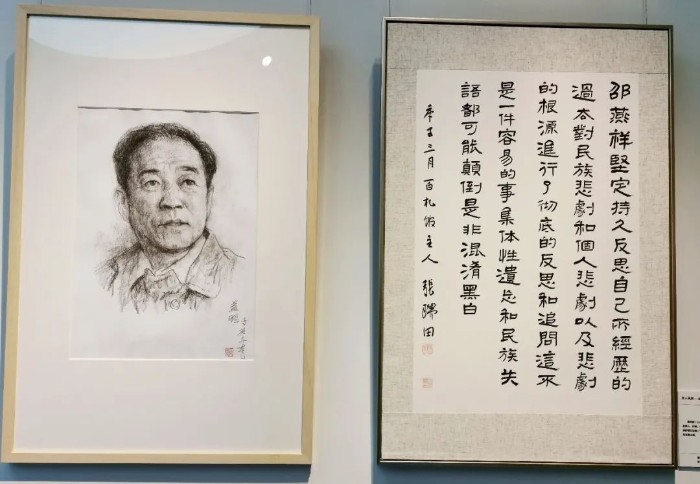 邵燕祥堅定持久反思自己所經歷的
過去對民族悲劇和個人悲劇以及悲劇
的根源進行了彻底的反思和追問這不
是一件容易的事集体性遺忘和民族失
語都可能顛倒是非混淆黑白
庚子三月 百札馆主人 張瑞田